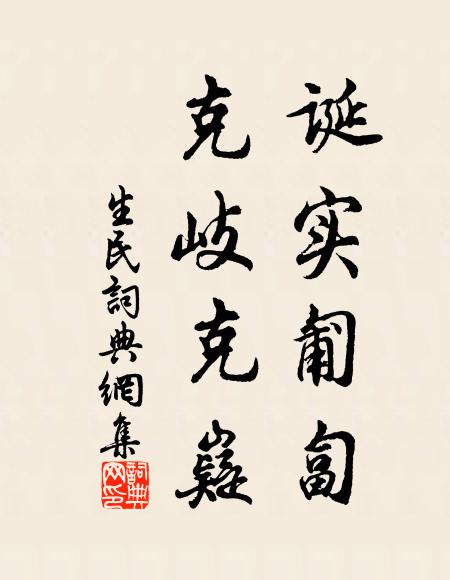 诞实匍匐
克岐克嶷
生民詞典網集
詞典
网印